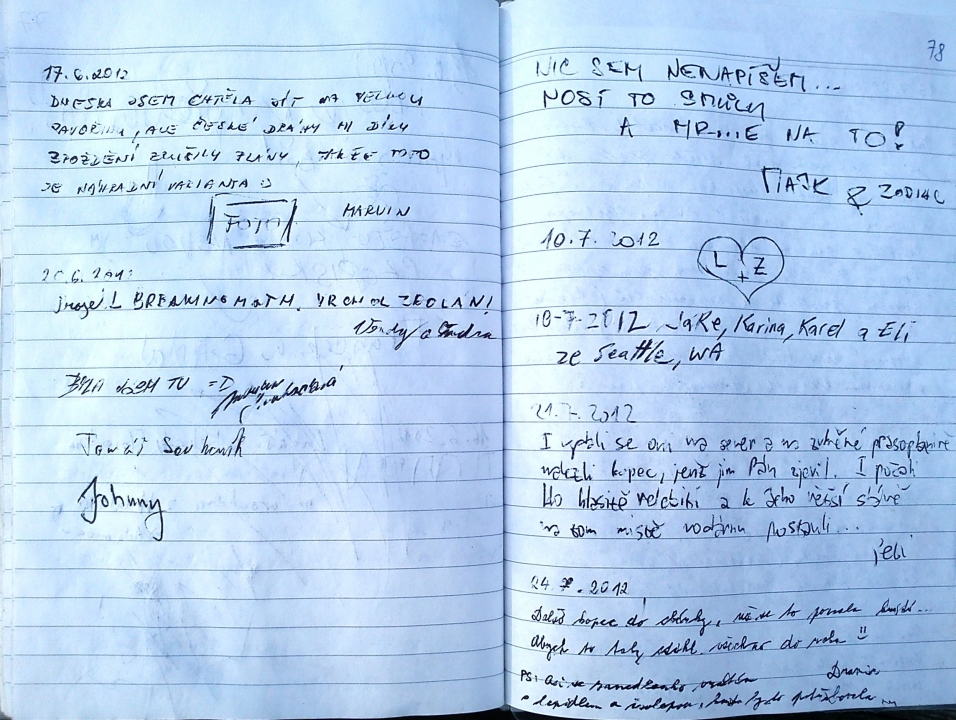 17.6.2012
DNESKA JSEM CHTĚLA JÍT NA VELKOU
JAVOŘINU, ALE ČESKÉ DRÁHY MI DÍKY
ZPOŽDĚNÍ ZRUŠILY PLÁNY, TAKŽE TOTO
JE NÁHRADNÍ VARIANTA :)
FOTO MARVIN
20.6.2012
BREAKING MOTH. VRCHOL ZDOLÁN!
Vendy a Ondra
BYLI JSEM TU =D
Tomáš
Johnny
78
NIC SEM NENAPÍŠEM...
NOSÍ TO SMŮLU
A MR...E NA TO!
MAJK & ZODIAC
10.7.2012
L + Z
18-7-2012 Jake, Karina, Karel a Eli
ze Seattle, WA
21.7.2012
I vydali se oni na sever a na zvlněné
nalezli kopec, jenž jim Pán zjevil. I počali
Ho hlasitě velebiti a k Jeho větší slávě
na tom místě vodárnu postavili...
jebi
24.7.2012
Další kopec do sbírky, už se to pomalu
Abych to tady stihl všechno do roka
PS:
a lepidlem a izolepou,